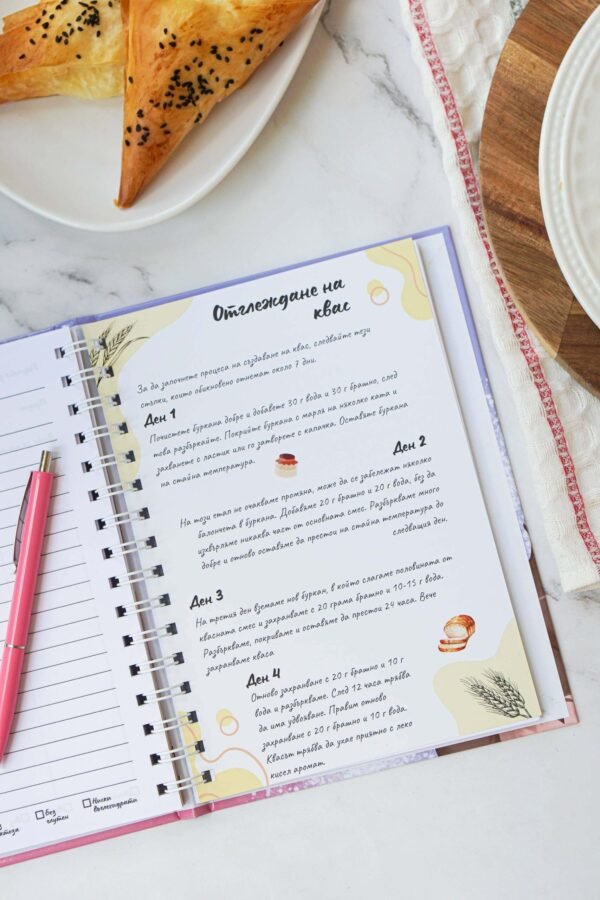 Отглеждане на
квас
За да започнете процеса на създаване на квас, следвайте тези
стъпки, които обикновено отнемат около 7 дни.
Ден 1
Почистете буркана добре и добавете 30 г вода и 30 г брашно, след
това разбъркайте. Покрийте буркана с марля на няколко ката и
захванете с ластик или го затворете с капачка. Оставяте буркана
на стайна температура.
Ден 2
На този етап не очакваме промяна, може да се забележат няколко
балончета в буркана. Добавяме 20 г брашно и 20 г вода, без да
изхвърляме никаква част от основната смес. Разбъркваме много
добре и отново оставяме да престои на стайна температура до
следващия ден.
Ден 3
На третия ден вземаме нов буркан, в който слагаме половината от
квасната смес и захранваме с 20 грама брашно и 10-15 г вода.
Разбъркваме, покриваме и оставяме да престои 24 часа. Вече
захранваме кваса
Ден 4
Отново захранване с 20 г брашно и 10 г
вода и разбъркваме. След 12 часа трябва
да има удвояване. Правим отново
захранване с 20 г брашно и 10 г вода.
Квасът трябва да ухае приятно с леко
кисел аромат.
Без
глутен
Ниски
въглехидрати